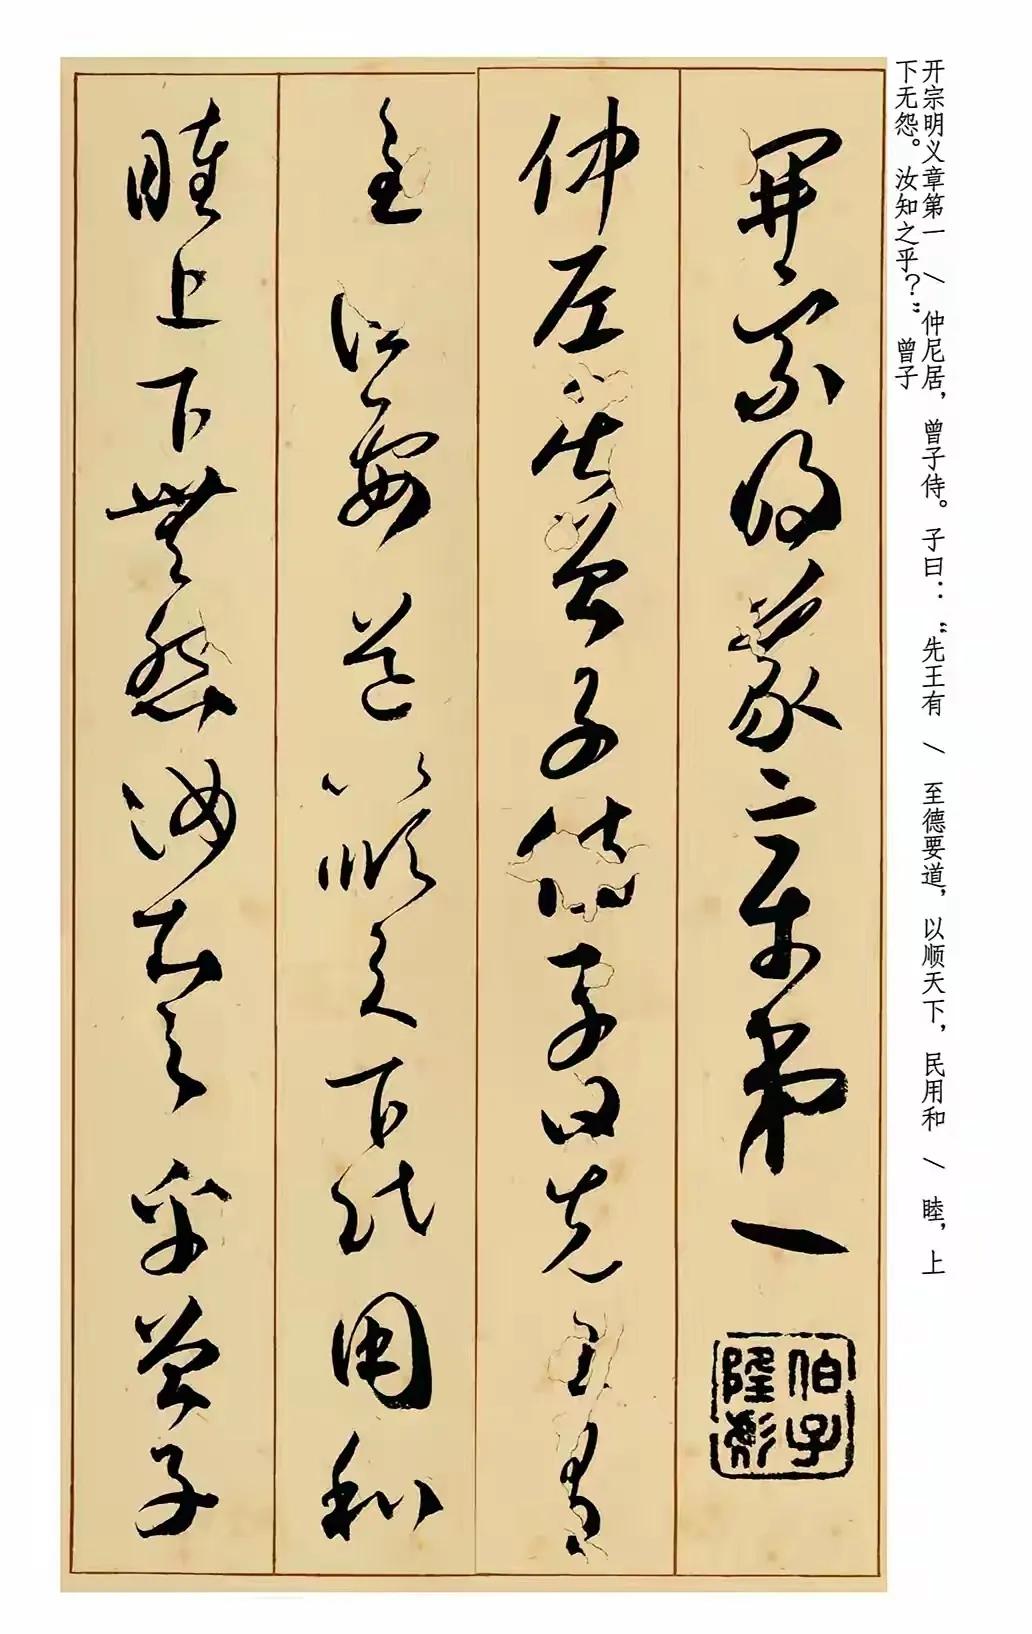 开宗明义章第一 \ 仲尼居，曾子侍。子曰：“先王有 \ 至德要道，以顺天下，民用和 \ 睦，上
下无怨。汝知之乎？”曾子
開宗明義章第一
伯子
仲尼居曾子侍子曰先王有
至德要道以順天下民用和
睦上下無怨汝知之乎曾子